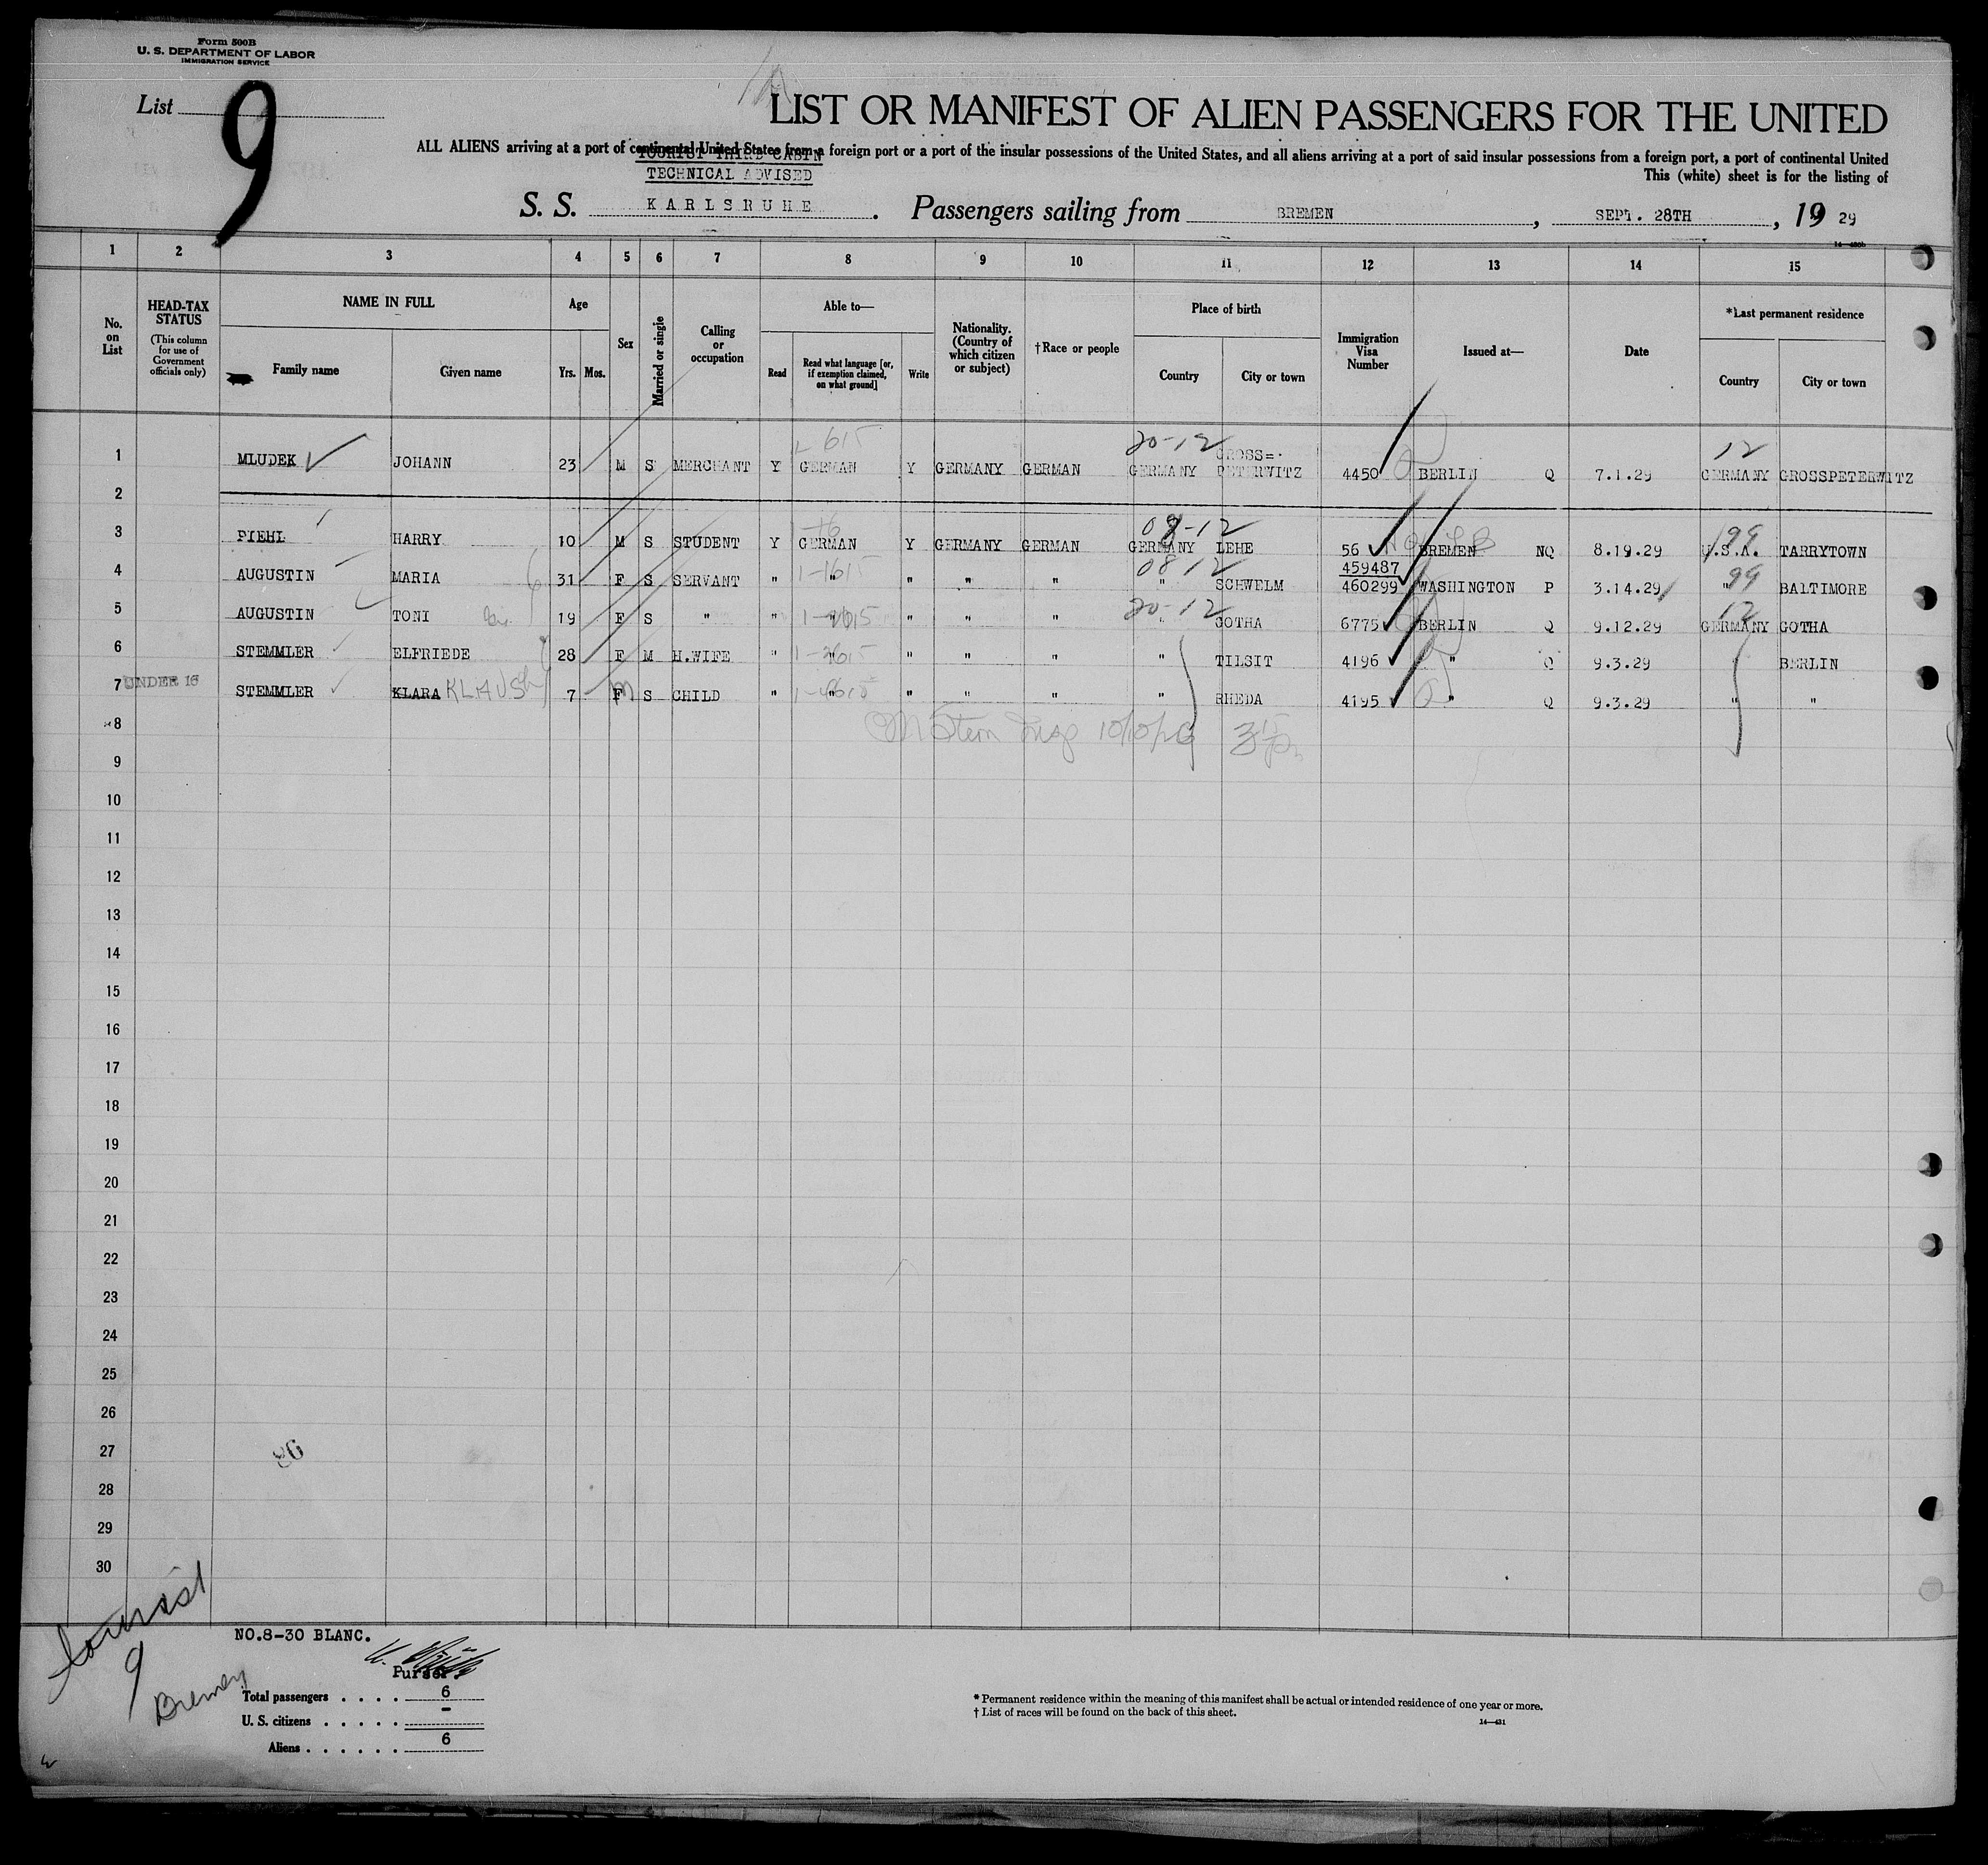 Form 500B
U. S. DEPARTMENT OF LABOR
IMMIGRATION SERVICE
List 9
LIST OR MANIFEST OF ALIEN PASSENGERS FOR THE UNITED
ALL ALIENS arriving at a port of continental United States from a foreign port or a port of the insular possessions of the United States, and all aliens arriving at a port of said insular possessions from a foreign port, a port of continental United
TOURIST THIRD CABIN
TECHNICAL ADVISED
This (white) sheet is for the listing of
S. S. KARLSRUHE. Passengers sailing from BREMEN, SEPT. 28TH, 19 29
14—430b
1 2 3 4 5 6 7 8 9 10 11 12 13 14 15
No. on List
HEAD-TAX STATUS
(This column for use of Government officials only)
NAME IN FULL
Family name
Given name
Age
Yrs. Mos.
Sex
Married or single
Calling or occupation
Able to—
Read
Read what language [or, if exemption claimed, on what ground]
Write
Nationality. (Country of which citizen or subject)
†Race or people
Place of birth
Country
City or town
Immigration Visa Number
Issued at—
Date
*Last permanent residence
Country
City or town
615 20-12 12
1 MLUDEK JOHANN 23 M S MERCHANT Y GERMAN Y GERMANY GERMAN GERMANY GROSS=PETERWITZ 4450 BERLIN Q 7.1.29 GERMANY GROSSPETERWITZ
2
08-12 99
3 PIEHL HARRY 10 M S STUDENT Y GERMAN Y GERMANY GERMAN GERMANY LEHE 56 BREMEN NQ 8.19.29 U.S.A. TARRYTOWN
08 12 459487 99
4 AUGUSTIN MARIA 31 F S SERVANT " " " " " " SCHWELM 460299 WASHINGTON P 3.14.29 " BALTIMORE
20-12 12
5 AUGUSTIN TONI 19 F S " " " " " " " GOTHA 6775 BERLIN Q 9.12.29 GERMANY GOTHA
6 STEMMLER ELFRIEDE 28 F M H.WIFE " " " " " " TILSIT 4196 " Q 9.3.29 " BERLIN
7 UNDER 16 STEMMLER KLARA KLAUS 7 F M S CHILD " " " " " " RHEDA 4195 " Q 9.3.29 " "
8
9
10
11
12
13
14
15
16
17
18
19
20
21
22
23
24
25
26
27
28
29
30
Tourist
9
Bremen
NO.8-30 BLANC.
Purser
Total passengers . . . . 6
U. S. citizens . . . . . -
Aliens . . . . . . 6
* Permanent residence within the meaning of this manifest shall be actual or intended residence of one year or more.
† List of races will be found on the back of this sheet.
14—431